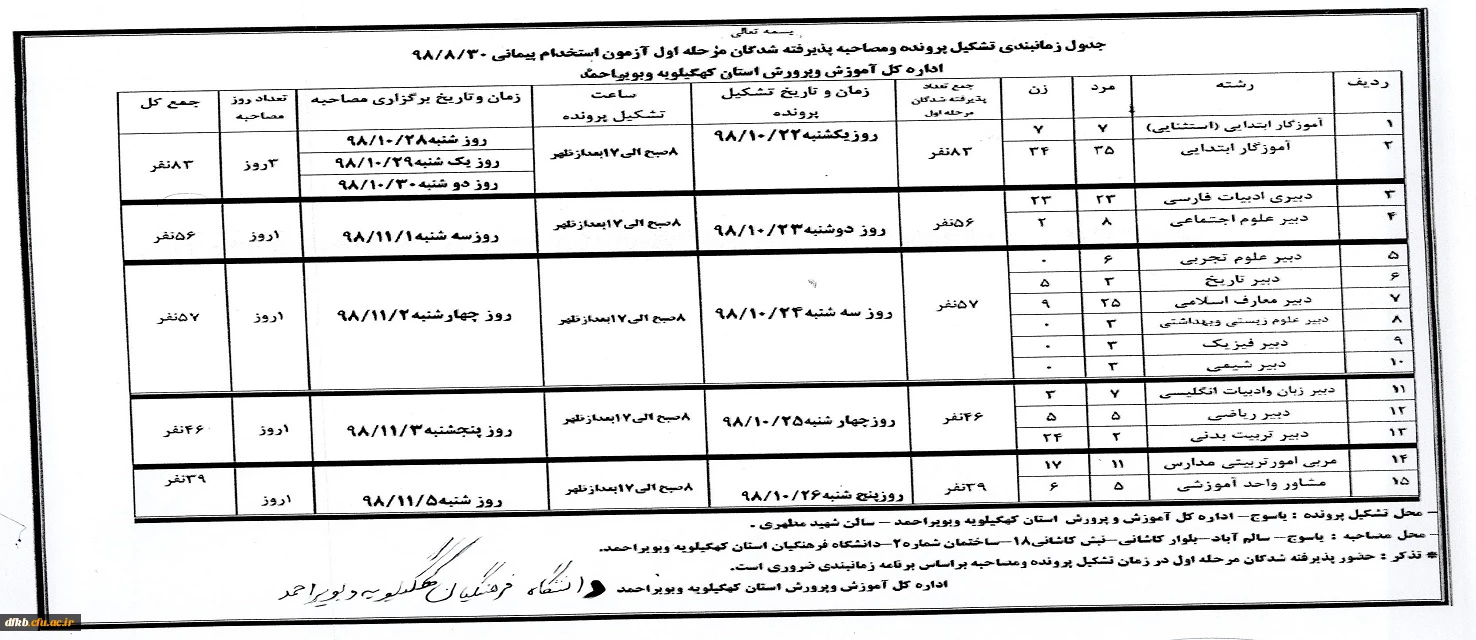 بسمه تعالی
جدول زمانبندی تشکیل پرونده ومصاحبه پذیرفته شدگان مرحله اول آزمون استخدام پیمانی ۹۸/۸/۳۰
اداره کل آموزش وپرورش استان کهگیلویه وبویراحمد
ردیف رشته مرد زن جمع تعداد پذیرفته شدگان مرحله اول زمان و تاریخ تشکیل پرونده ساعت تشکیل پرونده زمان وتاریخ برگزاری مصاحبه تعداد روز مصاحبه جمع کل
۱ آموزگار ابتدایی (استثنایی) ۷ ۷ ۸۳نفر روزیکشنبه۹۸/۱۰/۲۲ ۸صبح الی۱۷بعدازظهر روز شنبه۹۸/۱۰/۲۸ ۳روز ۸۳نفر
۲ آموزگار ابتدایی ۳۵ ۳۴ روز یک شنبه۹۸/۱۰/۲۹
روز دو شنبه۹۸/۱۰/۳۰
۳ دبیری ادبیات فارسی ۲۳ ۲۳ ۵۶نفر روز دوشنبه۹۸/۱۰/۲۳ ۸صبح الی۱۷بعدازظهر روزسه شنبه۹۸/۱۱/۱ ۱روز ۵۶نفر
۴ دبیر علوم اجتماعی ۸ ۲
۵ دبیر علوم تجربی ۶ ۰ ۵۷نفر روز سه شنبه۹۸/۱۰/۲۴ ۸صبح الی۱۷بعدازظهر روز چهارشنبه۹۸/۱۱/۲ ۱روز ۵۷نفر
۶ دبیر تاریخ ۳ ۵
۷ دبیر معارف اسلامی ۲۵ ۹
۸ دبیر علوم زیستی وبهداشتی ۳ ۰
۹ دبیر فیزیک ۳ ۰
۱۰ دبیر شیمی ۳ ۰
۱۱ دبیر زبان وادبیات انگلیسی ۷ ۳ ۴۶نفر روزچهار شنبه۹۸/۱۰/۲۵ ۸صبح الی۱۷بعدازظهر روز پنجشنبه۹۸/۱۱/۳ ۱روز ۴۶نفر
۱۲ دبیر ریاضی ۵ ۵
۱۳ دبیر تربیت بدنی ۲ ۲۴
۱۴ مربی امورتربیتی مدارس ۱۱ ۱۷ ۳۹نفر روزپنج شنبه۹۸/۱۰/۲۶ ۸صبح الی۱۷بعدازظهر روز شنبه۹۸/۱۱/۵ ۱روز ۳۹نفر
۱۵ مشاور واحد آموزشی ۵ ۶
– محل تشکیل پرونده : یاسوج– اداره کل آموزش و پرورش استان کهگیلویه وبویراحمد – سالن شهید مطهری .
– محل مصاحبه : یاسوج– سالم آباد–بلوار کاشانی–نبش کاشانی۱۸–ساختمان شماره۲–دانشگاه فرهنگیان استان کهگیلویه وبویراحمد.
* تذکر : حضور پذیرفته شدگان مرحله اول در زمان تشکیل پرونده ومصاحبه براساس برنامه زمانبندی ضروری است.
اداره کل آموزش وپرورش استان کهگیلویه وبویراحمد و دانشگاه فرهنگیان کهگیلویه و بویراحمد
dfkb.cfu.ac.ir